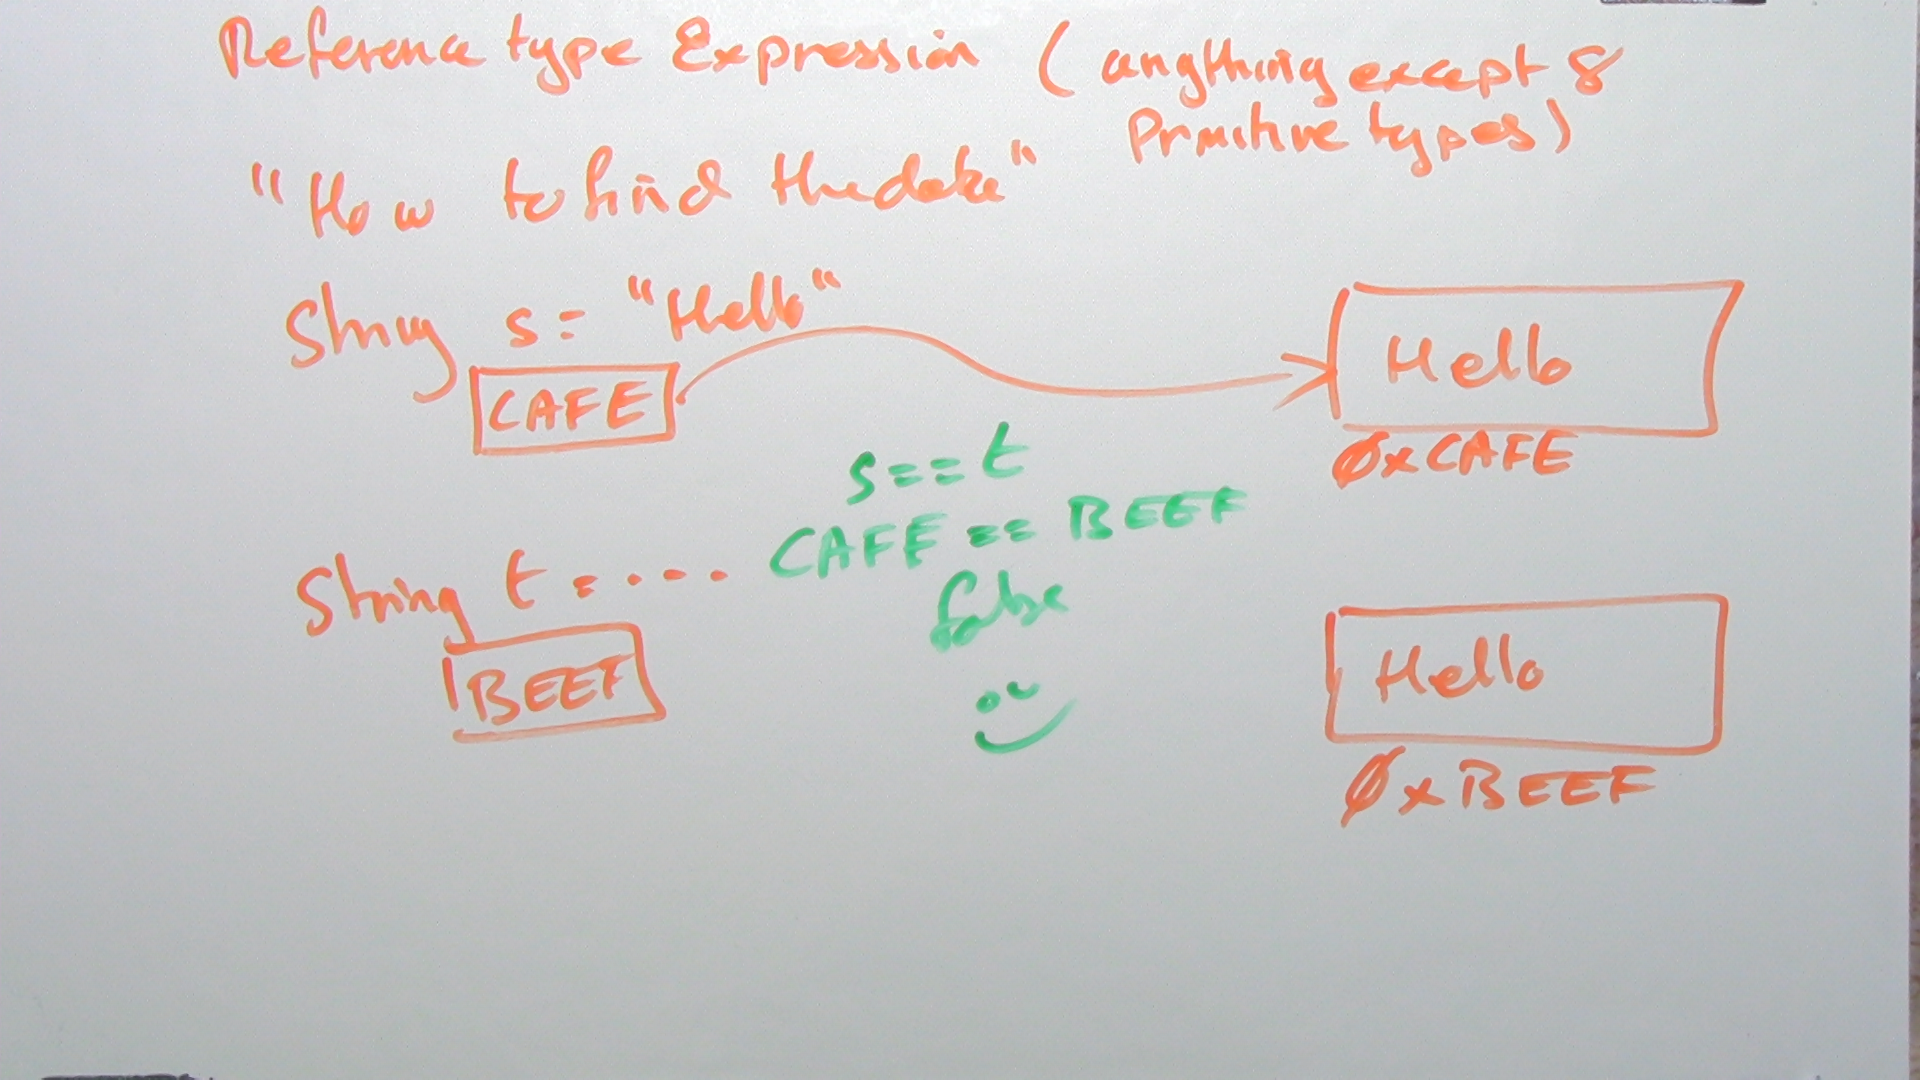 Reference type Expression (anything except 8
Primitive types)
"How to find the data"
String s = "Hello"
CAFE
Hello
0xCAFE
s == t
CAFE == BEEF
false
String t = ....
BEEF
Hello
0xBEEF